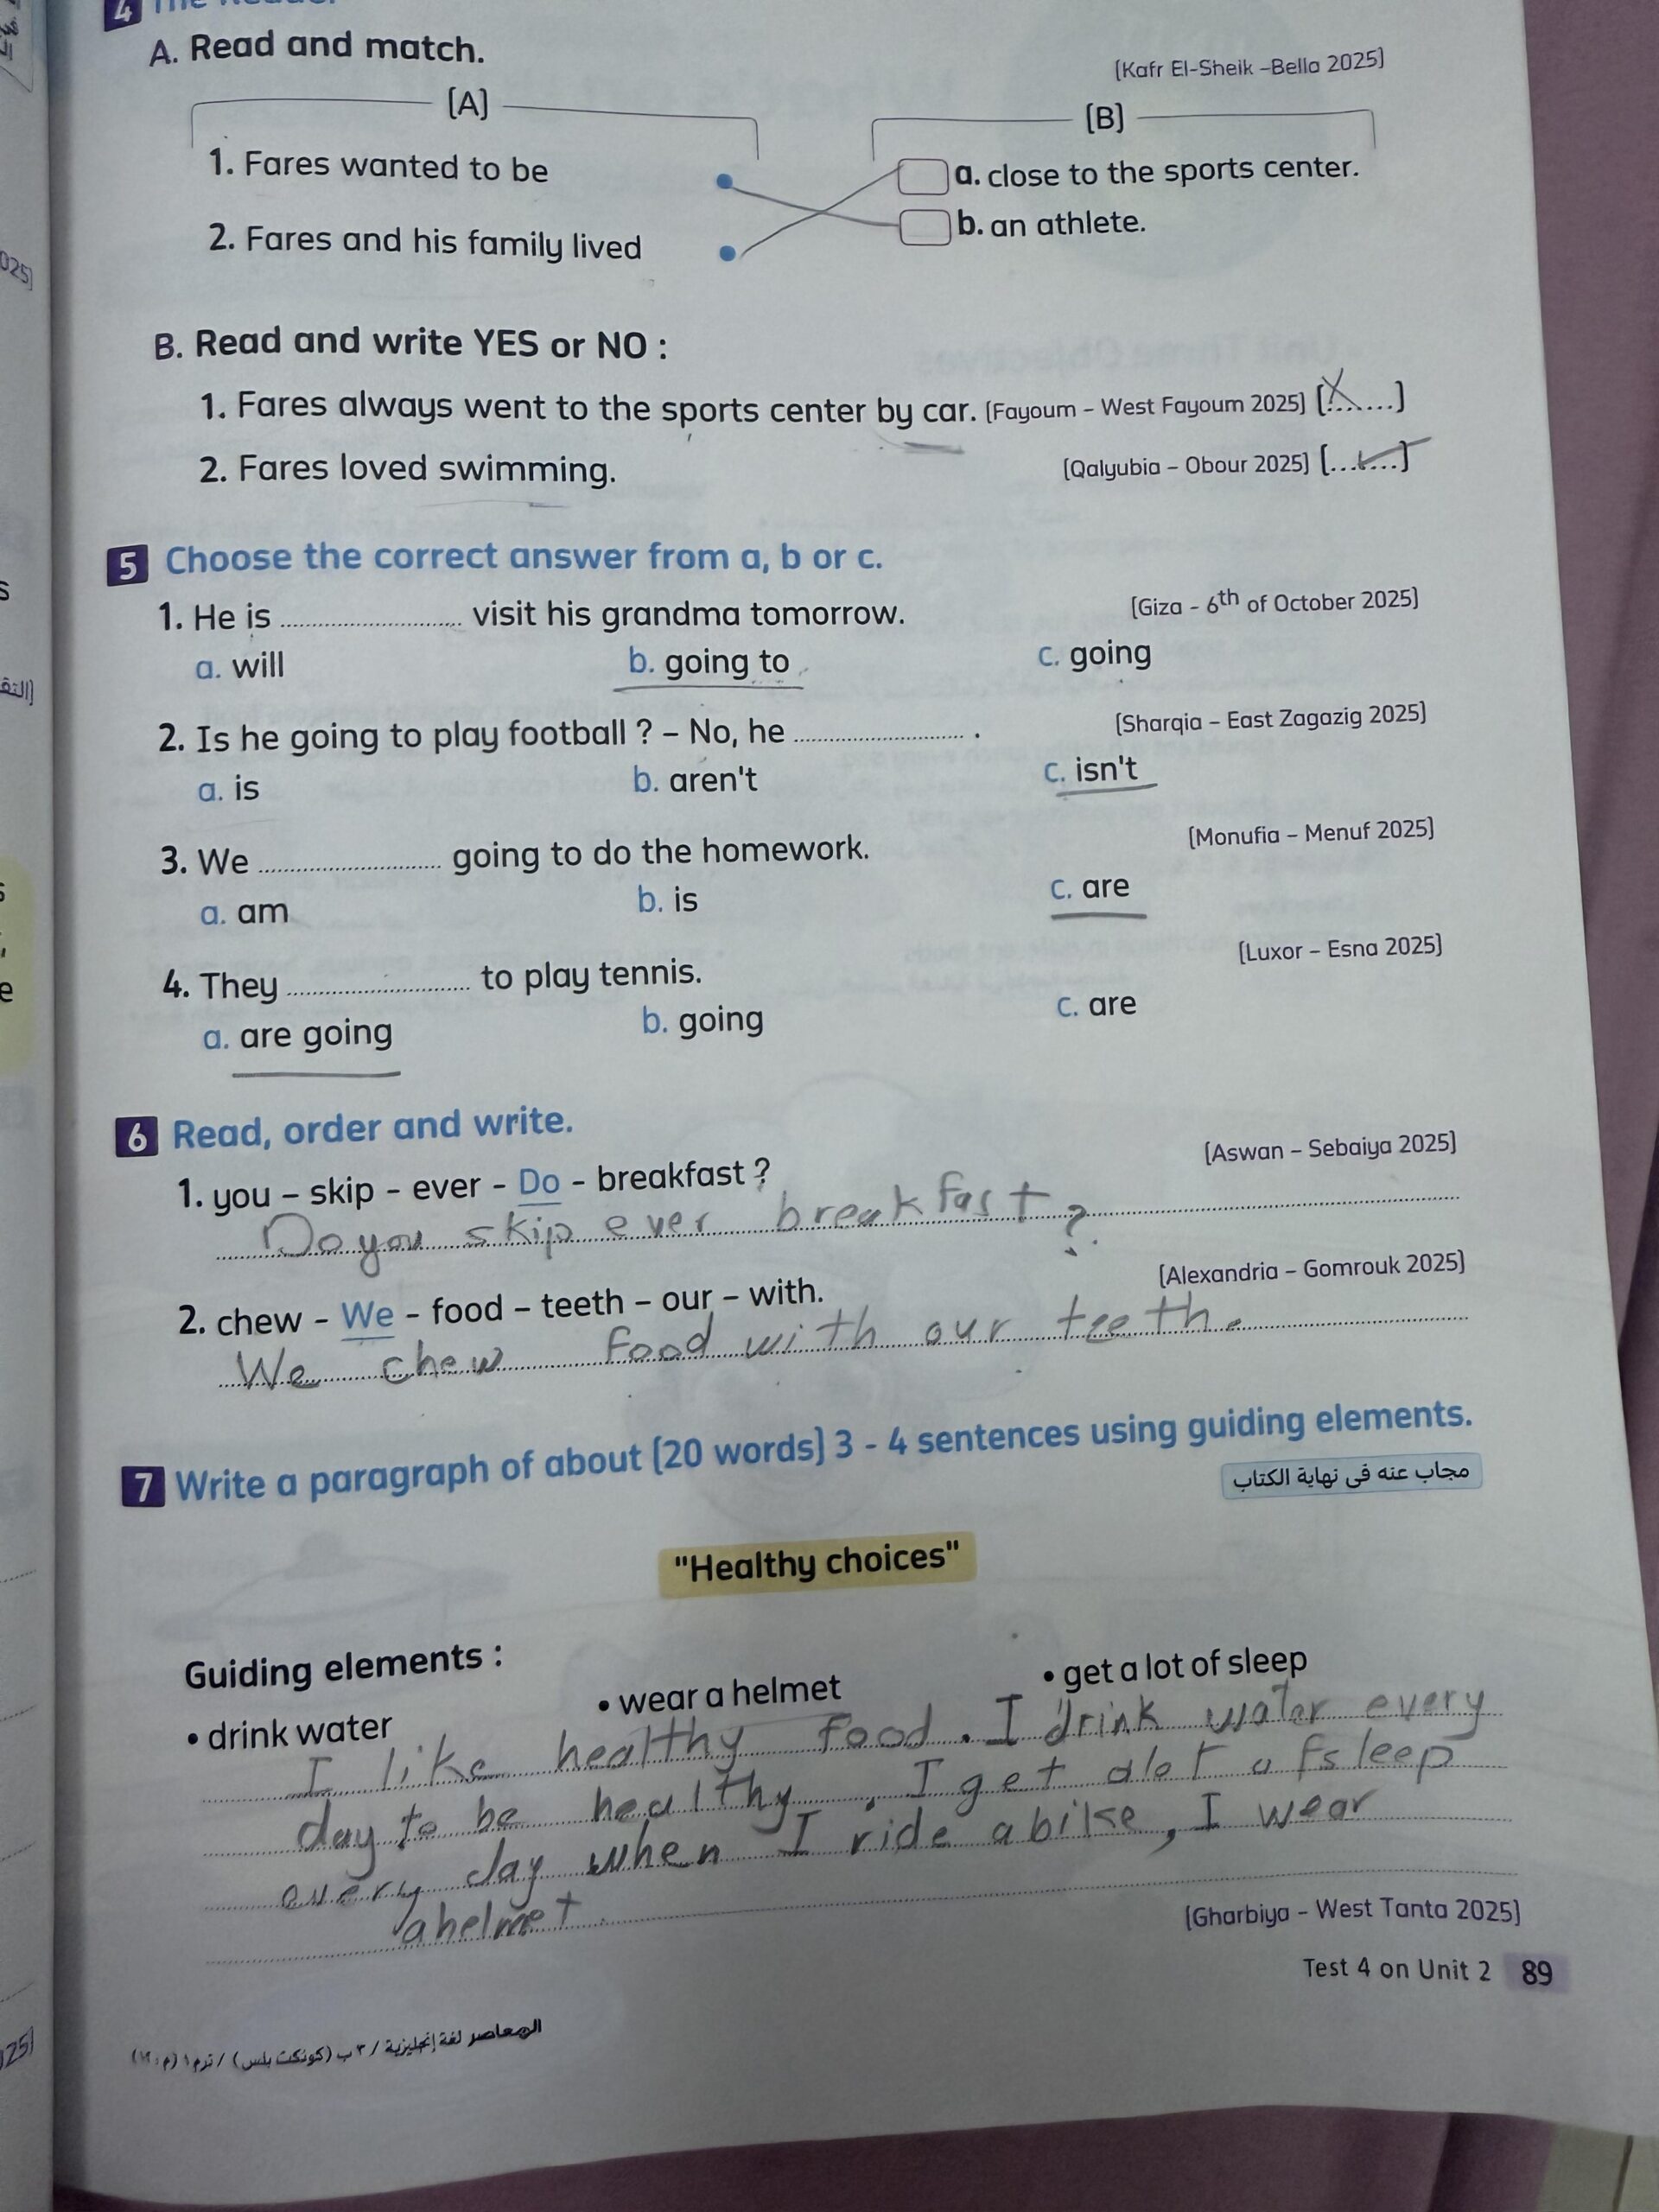 4 The Reader
A. Read and match.
[Kafr El-Sheik –Bella 2025]
[A]
[B]
1. Fares wanted to be
a. close to the sports center.
2. Fares and his family lived
b. an athlete.
B. Read and write YES or NO :
1. Fares always went to the sports center by car. [Fayoum – West Fayoum 2025] [X......]
2. Fares loved swimming. [Qalyubia – Obour 2025] [...✓...]
5 Choose the correct answer from a, b or c.
1. He is .......................... visit his grandma tomorrow. [Giza - 6th of October 2025]
a. will b. going to c. going
2. Is he going to play football ? – No, he .......................... . [Sharqia – East Zagazig 2025]
a. is b. aren't c. isn't
3. We .......................... going to do the homework. [Monufia – Menuf 2025]
a. am b. is c. are
4. They .......................... to play tennis. [Luxor – Esna 2025]
a. are going b. going c. are
6 Read, order and write.
1. you – skip - ever - Do - breakfast ? [Aswan – Sebaiya 2025]
Do you skip ever breakfast ?
2. chew - We - food – teeth – our – with. [Alexandria – Gomrouk 2025]
We chew food with our teeth.
7 Write a paragraph of about [20 words] 3 - 4 sentences using guiding elements.
مجاب عنه فى نهاية الكتاب
"Healthy choices"
Guiding elements :
• drink water • wear a helmet • get a lot of sleep
I like healthy food . I drink water every
day to be healthy . I get alot of sleep
every day when I ride a bike , I wear
a helmet .
[Gharbiya – West Tanta 2025]
Test 4 on Unit 2 89
المعاصر لغة إنجليزية / ٣ ب (كونكت بلس) / ترم ١
025]
025]